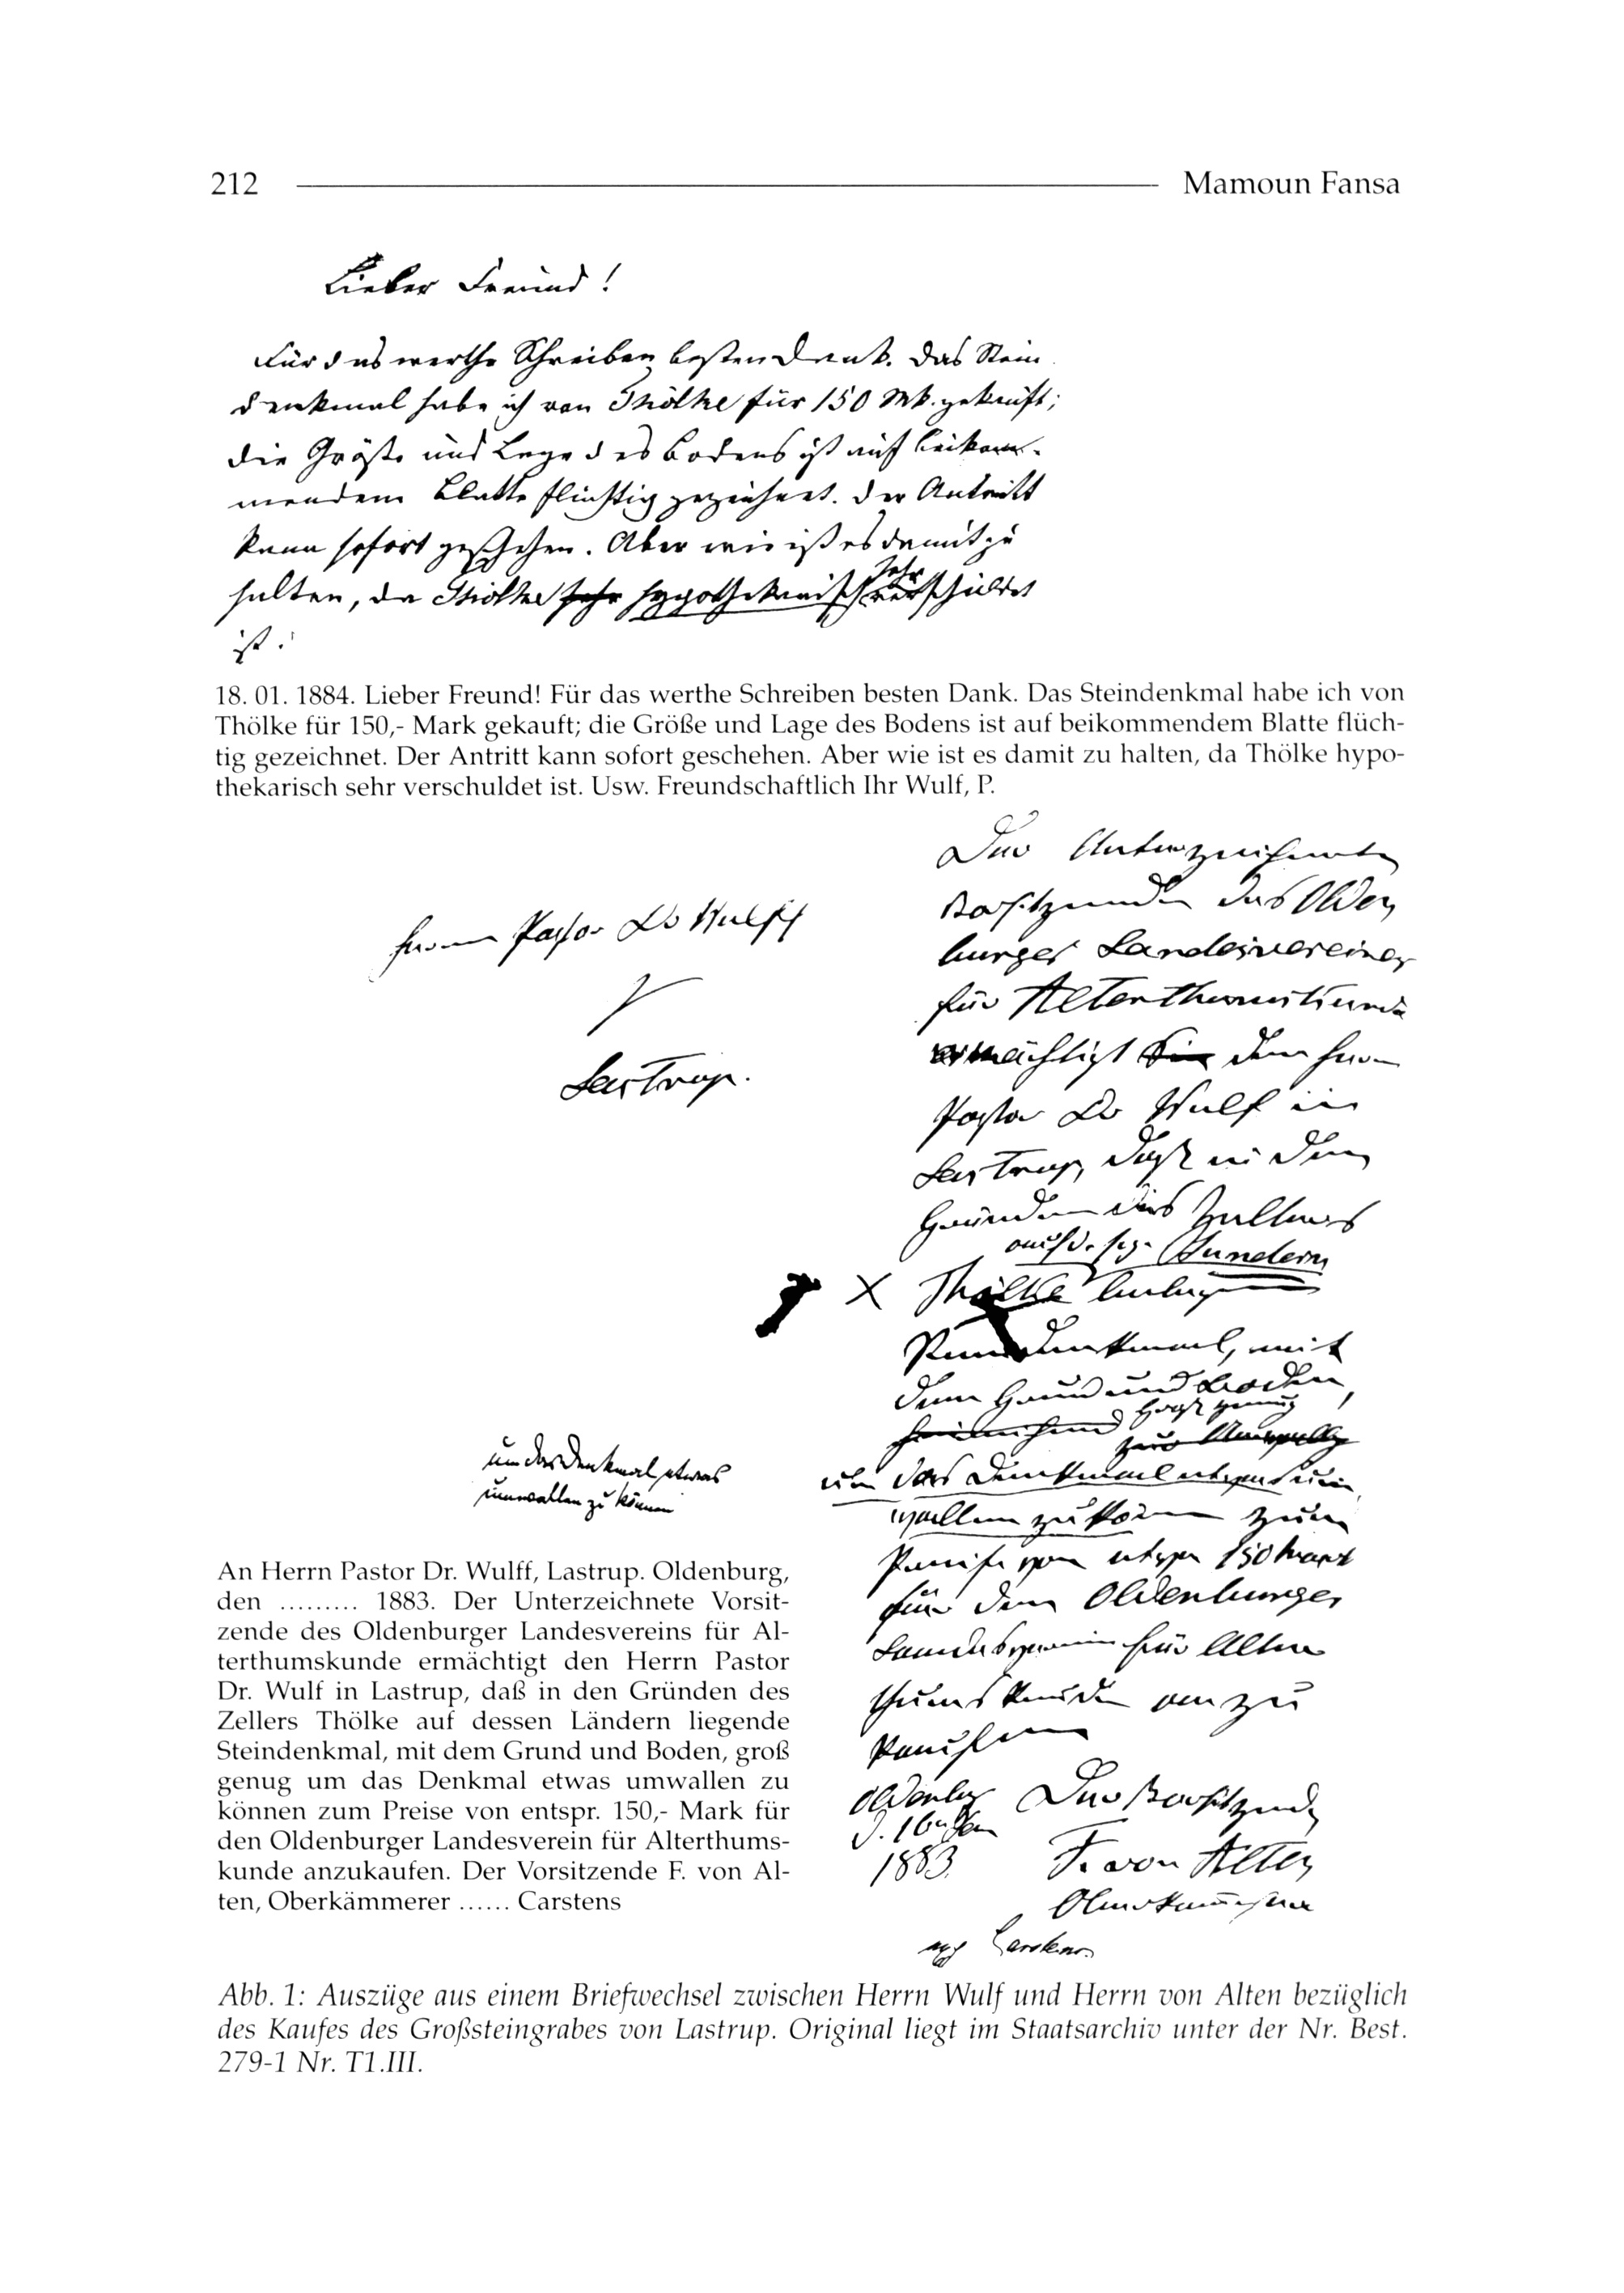 212 Mamoun Fansa
Lieber Freund!
Für das werthe Schreiben besten Dank. Das Stein
denkmal habe ich von Thölke für 150 Mk. gekauft;
die Größe und Lage des Bodens ist auf beikom-
mendem Blatte flüchtig gezeichnet. Der Antritt
kann sofort geschehen. Aber wie ist es damit zu
sehr
halten, da Thölke sehr hypothekarisch verschuldet
ist.
18. 01. 1884. Lieber Freund! Für das werthe Schreiben besten Dank. Das Steindenkmal habe ich von
Thölke für 150,- Mark gekauft; die Größe und Lage des Bodens ist auf beikommendem Blatte flüch-
tig gezeichnet. Der Antritt kann sofort geschehen. Aber wie ist es damit zu halten, da Thölke hypo-
thekarisch sehr verschuldet ist. Usw. Freundschaftlich Ihr Wulf, P.
Herrn Pastor Dr Wulff
Lastrup.
Der Unterzeichnete
Vorsitzende des Olden
burger Landesvereines
für Alterthumskunde
ermächtigt den Herrn
Pastor Dr Wulf in
Lastrup, daß in den
Gründen des Zellers
auf d. sog. Sundern
X Thölke belegene
Steindenkmal, mit
dem Grund und Boden,
groß genug
zur
um das Denkmal etwas um
wallen zu können zum
Preise von etwa 150 Mark
für den Oldenburger
Landesverein für Alter
thumskunde anzu
kaufen
Oldenbg Der Vorsitzende
1883. F. von Alten
Oberkammerherr
Carstens.
um das Denkmal etwas
umwallen zu können
An Herrn Pastor Dr. Wulff, Lastrup. Oldenburg,
den ......... 1883. Der Unterzeichnete Vorsit-
zende des Oldenburger Landesvereins für Al-
terthumskunde ermächtigt den Herrn Pastor
Dr. Wulf in Lastrup, daß in den Gründen des
Zellers Thölke auf dessen Ländern liegende
Steindenkmal, mit dem Grund und Boden, groß
genug um das Denkmal etwas umwallen zu
können zum Preise von entspr. 150,- Mark für
den Oldenburger Landesverein für Alterthums-
kunde anzukaufen. Der Vorsitzende F. von Al-
ten, Oberkämmerer ...... Carstens
Abb. 1: Auszüge aus einem Briefwechsel zwischen Herrn Wulf und Herrn von Alten bezüglich
des Kaufes des Großsteingrabes von Lastrup. Original liegt im Staatsarchiv unter der Nr. Best.
279-1 Nr. T1.III.